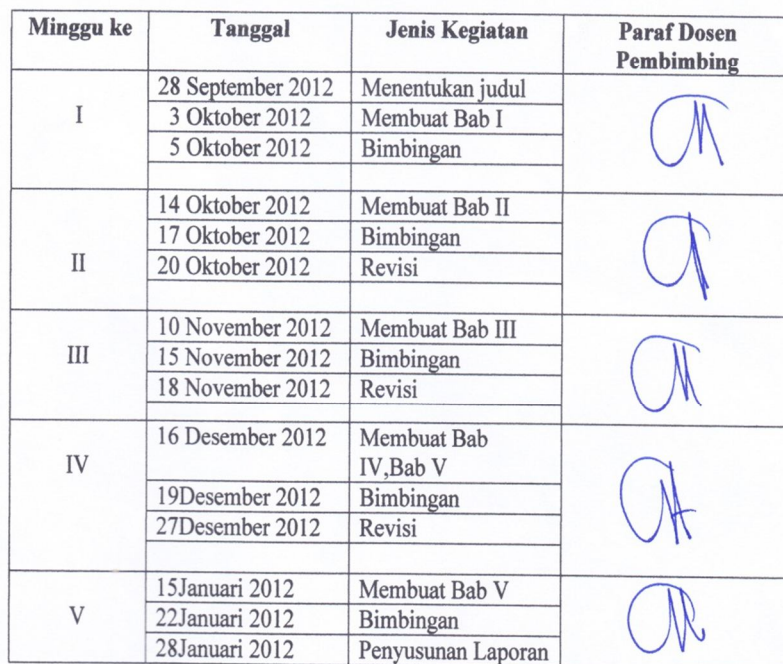 Minggu ke Tanggal Jenis Kegiatan Paraf Dosen
Pembimbing
28 September 2012 Menentukan judul
I 3 Oktober 2012 Membuat Bab I
5 Oktober 2012 Bimbingan
14 Oktober 2012 Membuat Bab II
17 Oktober 2012 Bimbingan
II 20 Oktober 2012 Revisi
10 November 2012 Membuat Bab III
III 15 November 2012 Bimbingan
18 November 2012 Revisi
16 Desember 2012 Membuat Bab
IV IV,Bab V
19Desember 2012 Bimbingan
27Desember 2012 Revisi
15Januari 2012 Membuat Bab V
V 22Januari 2012 Bimbingan
28Januari 2012 Penyusunan Laporan